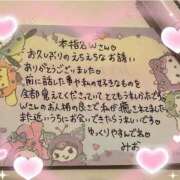 本指名Wさん♡
お久しぶりのえちえちなお誘い
ありがとうございました。
前に話した事や私の好きなものを
全部覚えててくださっていて とてもうれ
Wさんのお人柄の良さで私が癒されてました
また近いうちにお会いできたらうれしいです
ゆっくりやすんでね
みお